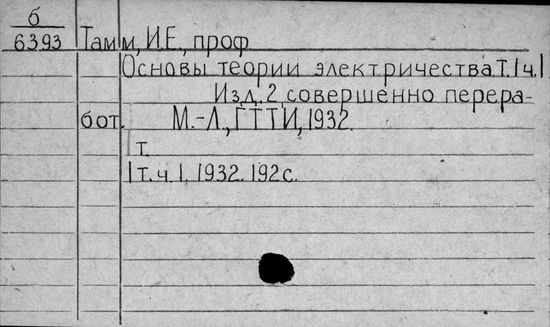 б
6393 Тамм, И.Е., проф
Основы теории электричества. Т. 1 ч. 1
Изд. 2 совершенно перера-
бот. М.-Л., ГТТИ, 1932.
1 т.
1 т. ч. 1. 1932. 192 с.